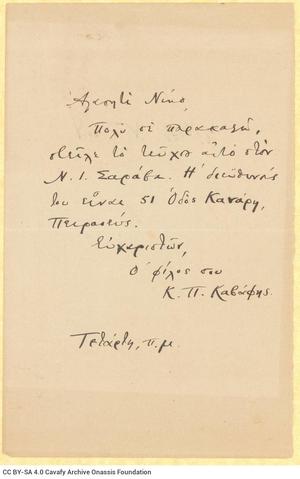 Ἀγαπητὲ Νῖκο,
Πολὺ σὲ παρακαλῶ,
στεῖλε τὸ τεῦχος αὐτὸ στὸν
Ν. Ι. Σαράβα. Η διεύθυνσίς
του εἶναι 51 Ὁδὸς Κανάρη,
Πειραιεύς.
Εὐχαριστῶν,
Ὁ φίλος σου
Κ. Π. Καβάφης.
Τετάρτη, π.μ.
CC BY-SA 4.0 Cavafy Archive Onassis Foundation